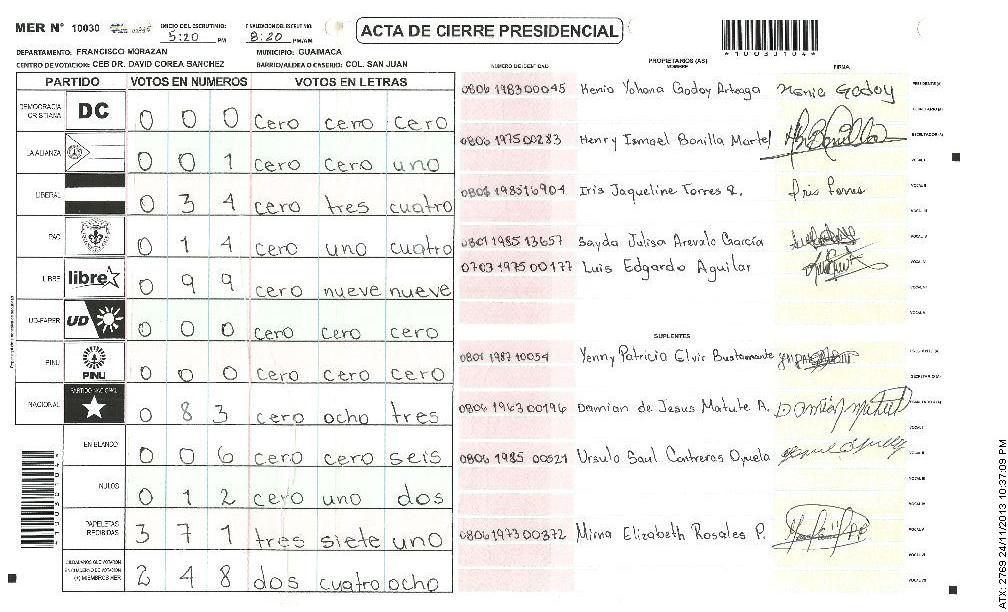 MER N° 10030
INICIO DEL ESCRUTINIO: 5:20 PM
FINALIZACION DEL ESCRUTINIO: 8:20 PM/AM
ACTA DE CIERRE PRESIDENCIAL
*10033104*
DEPARTAMENTO: FRANCISCO MORAZAN
MUNICIPIO: GUAIMACA
CENTRO DE VOTACION: CEB DR. DAVID COREA SANCHEZ
BARRIO/ALDEA O CASERIO: COL. SAN JUAN
PARTIDO VOTOS EN NUMEROS VOTOS EN LETRAS
DEMOCRACIA CRISTIANA DC 0 0 0 cero cero cero
LA ALIANZA 0 0 1 cero cero uno
LIBERAL 0 3 4 cero tres cuatro
PAC 0 1 4 cero uno cuatro
LIBRE libre 0 9 9 cero nueve nueve
UD-FAPER UD 0 0 0 cero cero cero
PINU PINU 0 0 0 cero cero cero
NACIONAL PARTIDO NACIONAL 0 8 3 cero ocho tres
EN BLANCO 0 0 6 cero cero seis
NULOS 0 1 2 cero uno dos
PAPELETAS RECIBIDAS 3 7 1 tres siete uno
CIUDADANOS QUE VOTARON EN CUADERNO DE VOTACION (+) MIEMBROS MER 2 4 8 dos cuatro ocho
NUMERO DE IDENTIDAD
PROPIETARIOS (AS)
NOMBRE
FIRMA
0806 1983 00045 Kenia Yohana Godoy Arteaga Kenia Godoy PRESIDENTE(A)
SECRETARIO(A)
0806 1975 00283 Henry Ismael Bonilla Martel ESCRUTADOR(A)
VOCAL I
0806 1985 16904 Iris Jaqueline Torres R. Iris Torres VOCAL II
VOCAL III
0801 1985 13657 Sayda Julisa Arevalo García VOCAL IV
0703 1975 00177 Luis Edgardo Aguilar VOCAL V
VOCAL VI
SUPLENTES
0801 1987 10054 Yenny Patricia Elvir Bustamante PRESIDENTE(A)
SECRETARIO(A)
0806 1963 00196 Damian de Jesus Matute A. Damian Matute ESCRUTADOR(A)
VOCAL I
0806 1985 00521 Ursula Saul Contreras Oyuela VOCAL II
VOCAL III
VOCAL IV
0806 1973 00372 Mirna Elizabeth Rosales P. VOCAL V
VOCAL VI
VOCAL VII
ATX: 2769 24/11/2013 10:37:09 PM